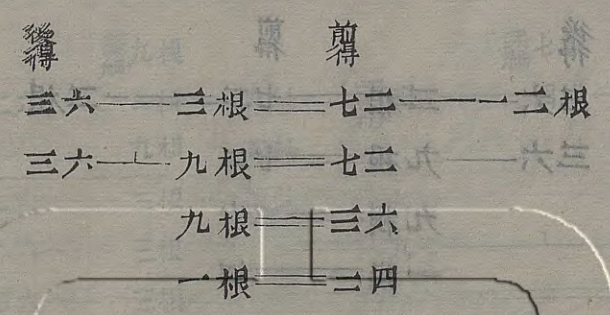 後得 前得
三六——三根===七二——一二根
三六—⊥—九根===七二
九根===三六
一根===二四